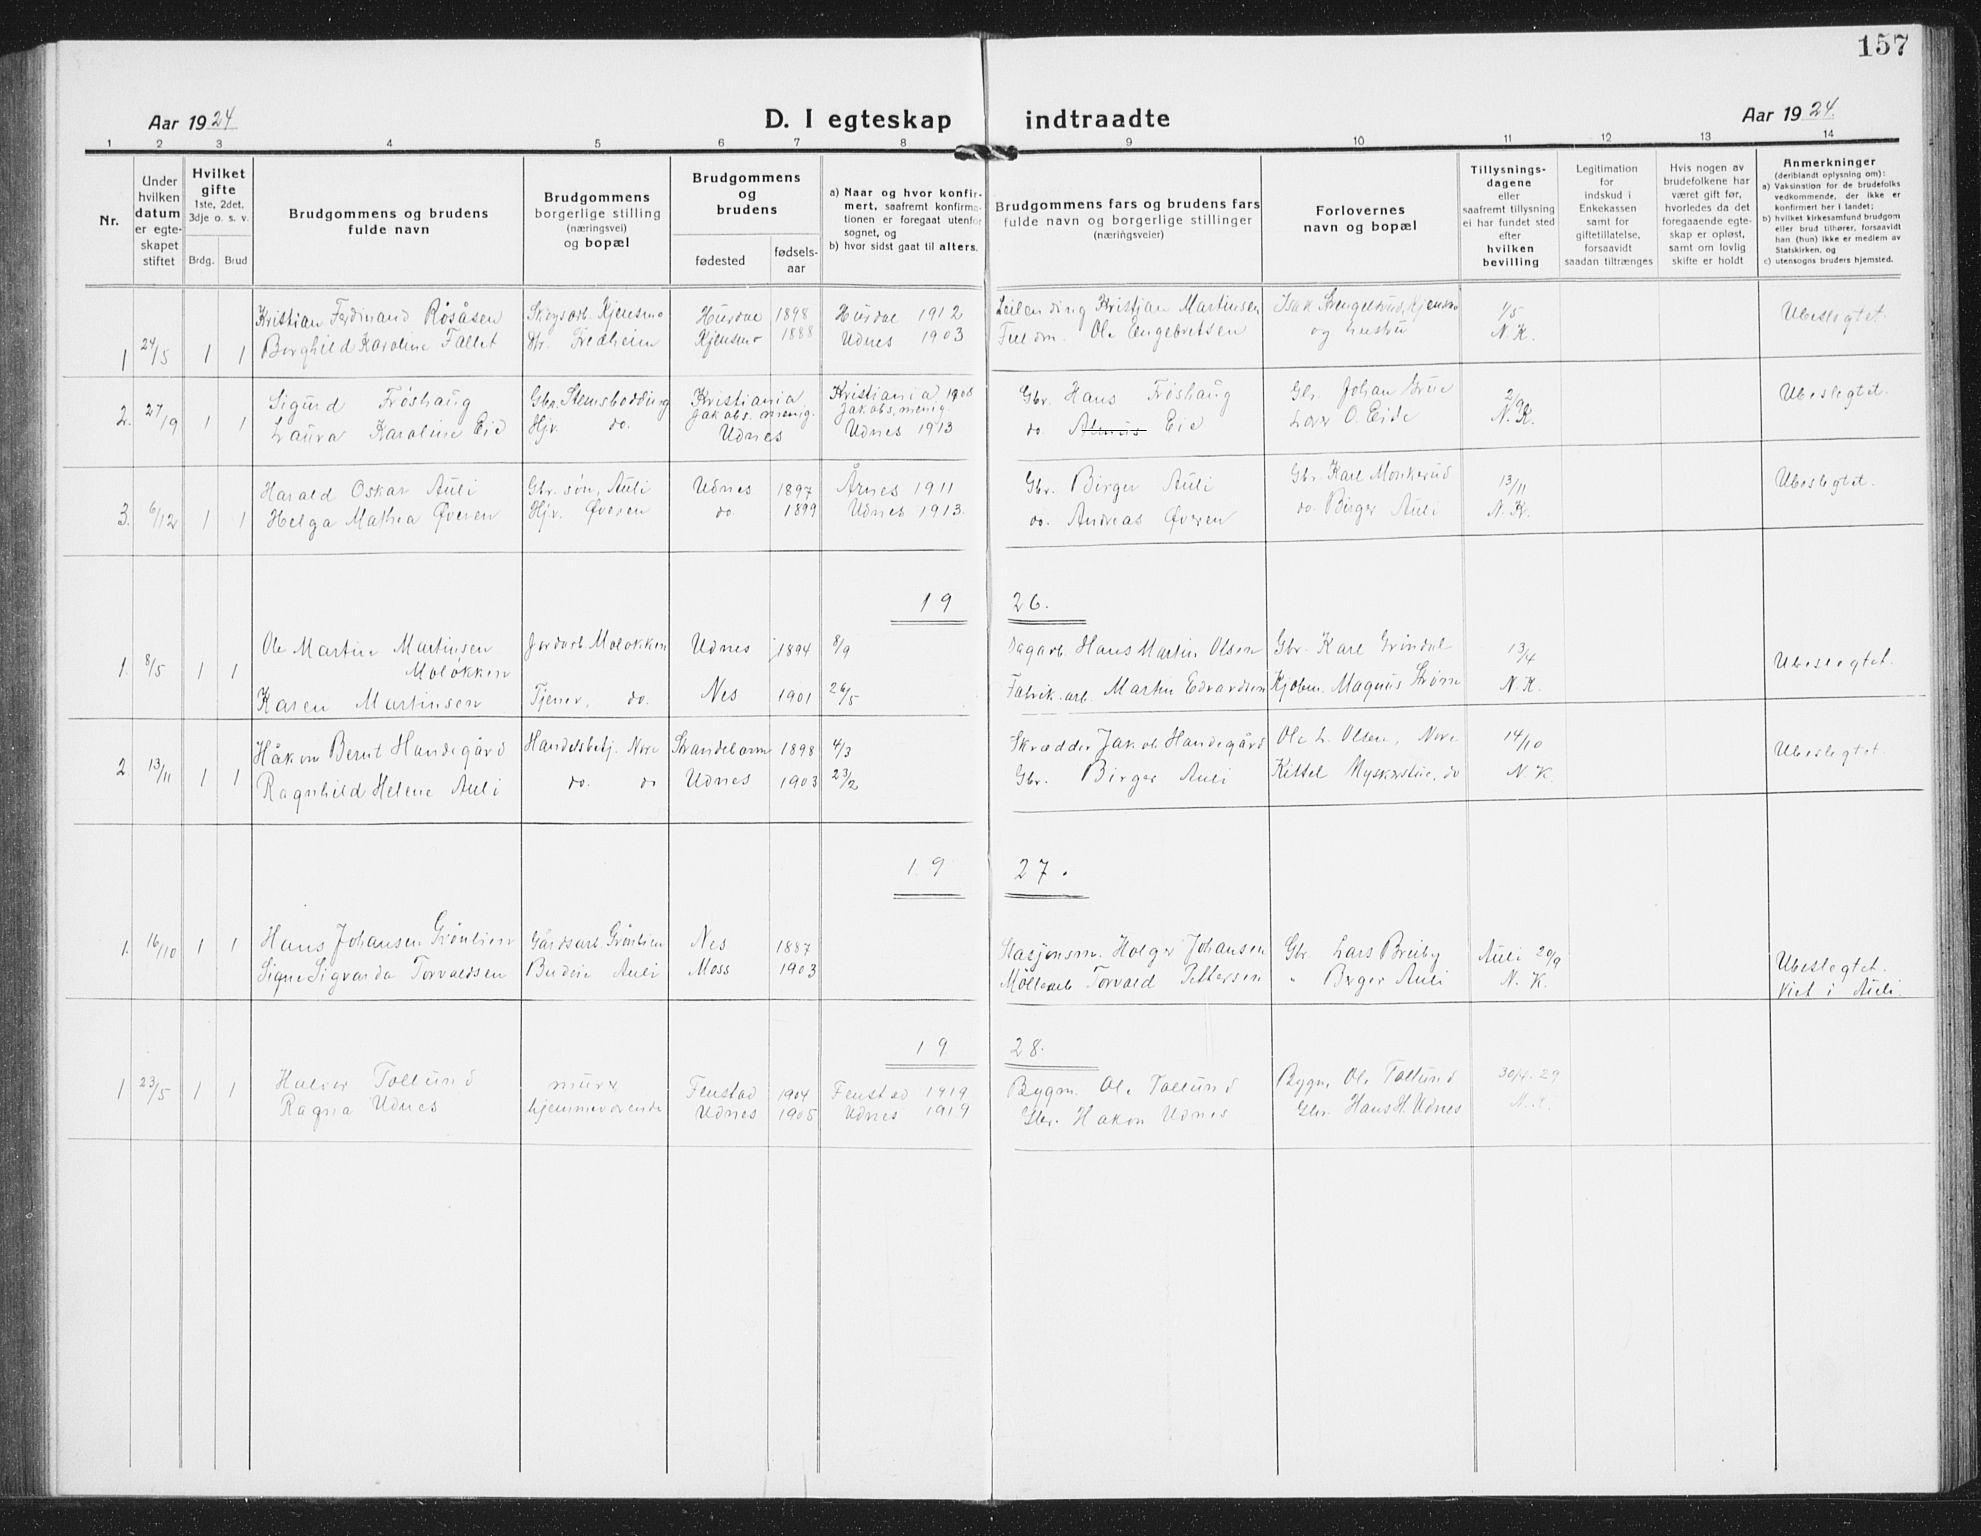 157
Aar 1924
D. I egteskap indtraadte
Aar 1924.
1 2 3 4 5 6 7 8 9 10 11 12 13 14
Nr.
Under hvilken datum er egteskapet stiftet
Hvilket gifte 1ste, 2det, 3dje o. s. v.
Brdg. Brud
Brudgommens og brudens fulde navn
Brudgommens borgerlige stilling (næringsvei) og bopæl
Brudgommens og brudens
fødested
fødselsaar
a) Naar og hvor konfirmert, saafremt konfirmationen er foregaat utenfor sognet, og
b) hvor sidst gaat til alters.
Brudgommens fars og brudens fars fulde navn og borgerlige stillinger (næringsveier)
Forlovernes navn og bopæl
Tillysningsdagene eller saafremt tillysning ei har fundet sted efter hvilken bevilling
Legitimation for indskud i Enkekassen samt for giftetillatelse, forsaavidt saadan tiltrænges
Hvis nogen av brudefolkene har været gift før, hvorledes da det foregaaende egteskap er opløst, samt om lovlig skifte er holdt
Anmerkninger (deriblandt oplysning om):
a) Vaksination for de brudefolks vedkommende, der ikke er konfirmert her i landet;
b) hvilket kirkesamfund brudgom eller brud tilhører, forsaavidt han (hun) ikke er medlem av Statskirken, og
c) utensogns bruders hjemsted.
Kristian Ferdinand Røsåsen Skogsarb. Kjensmo Hurdal 1898 Hurdal 1912 Kristian Martinsen Isak
1 24/5 1 1 Borghild Karoline Fallet Fredheim Kjensmo 1888 Udnes 1903 Ole Engebretsen og hustru 1/5 N. K. Ubeslegtet.
Sigurd Frøshaug Gbr. Kristiania Jakobs. menig. Kristiania 1908 Jakobs. menig. Gbr. Hans Frøshaug Gbr. Johan Grue
2. 27/9 1 1 Laura Karoline Eid Hjv. do. Udnes Udnes 1913 do. Eie Lars O. Eide N. K. Ubeslegtet.
Harald Oskar Auli Gbr. søn, Auli Udnes 1897 Årnes 1911 Gbr. Birger Auli Gbr. Karl Monkerud 13/11
3. 6/12 1 1 Helga Mathea Øveren Hjv. Øveren do. 1899 Udnes 1913. do. Andreas Øveren do. Birger Auli N. K. Ubeslegtet.
19 26.
Ole Martin Martinsen Moløkken Jordarb. Moløkken Udnes 1894 8/9 Dagarb. Hans Martin Olsen Gbr. Karl Grindal 13/4
1. 8/5 1 1 Karen Martinsen Tjener, do. Nes 1901 26/5 Fabrik.arb. Martin Edvardsen Kjøbm. Magnus Strøm N. K. Ubeslegtet.
Håkon Bernt Handegård Handelsbetj. Nore Strandebarm 1898 4/3 Skrædder Jakob Handegård Ole L. Olsen, Nore 14/10
2 13/11 1 1 Ragnhild Helene Auli do. do Udnes 1903 23/2 Gbr. Birger Auli Kittel Myskerstue, do N. K. Ubeslegtet.
19 27.
1. 16/10 1 1 Hans Johansen Grønlien Gårdsarb. Grønlien Nes 1887 Stasjonsm. Holger Johansen Gbr. Lars Breiby Auli 20/9
Signe Sigvarda Torvaldsen Budeie Auli Moss 1903 Møllearb Torvald Pettersen " Birger Auli N. K. Ubeslegtet. Viet i Auli.
19 28.
1 23/5 1 1 Halvor Tollund murer Fenstad 1904 Fenstad 1919 Bygm. Ole Tollund Bygm. Ole Tollund 30/4. 29
Ragna Udnes hjemmeværende Udnes 1905 Udnes 1919 Gbr. Hakon Udnes Gbr. Hans H. Udnes N. K.